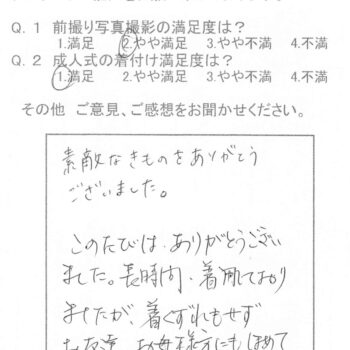 Q.1 前撮り写真撮影の満足度は？
1.満足 2.やや満足 3.やや不満 4.不満
Q.2 成人式の着付け満足度は？
1.満足 2.やや満足 3.やや不満 4.不満
その他 ご意見、ご感想をお聞かせください。
素敵なきものをありがとう
ございました。
このたびは、ありがとうござい
ました。長時間、着用しており
ましたが、着くずれもせず
お友達、お母様方にもほめて